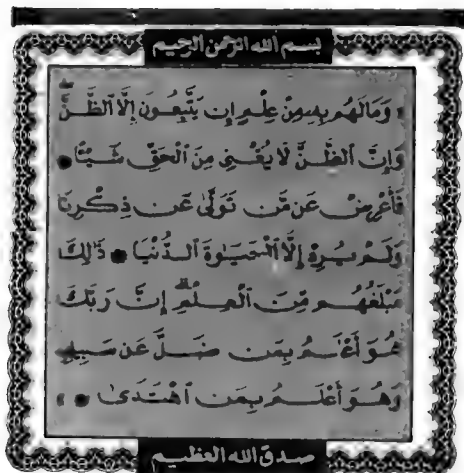 بسم الله الرحمن الرحيم
وَمَا لَهُم بِهِۦ مِنْ عِلْمٍ إِن يَتَّبِعُونَ إِلَّا ٱلظَّنَّ
وَإِنَّ ٱلظَّنَّ لَا يُغْنِى مِنَ ٱلْحَقِّ شَيْـًٔا ●
فَأَعْرِضْ عَن مَّن تَوَلَّىٰ عَن ذِكْرِنَا
وَلَمْ يُرِدْ إِلَّا ٱلْحَيَوٰةَ ٱلدُّنْيَا ● ذَٰلِكَ
مَبْلَغُهُم مِّنَ ٱلْعِلْمِ إِنَّ رَبَّكَ
هُوَ أَعْلَمُ بِمَن ضَلَّ عَن سَبِيلِهِ
وَهُوَ أَعْلَمُ بِمَنِ ٱهْتَدَىٰ ●
صدق الله العظيم